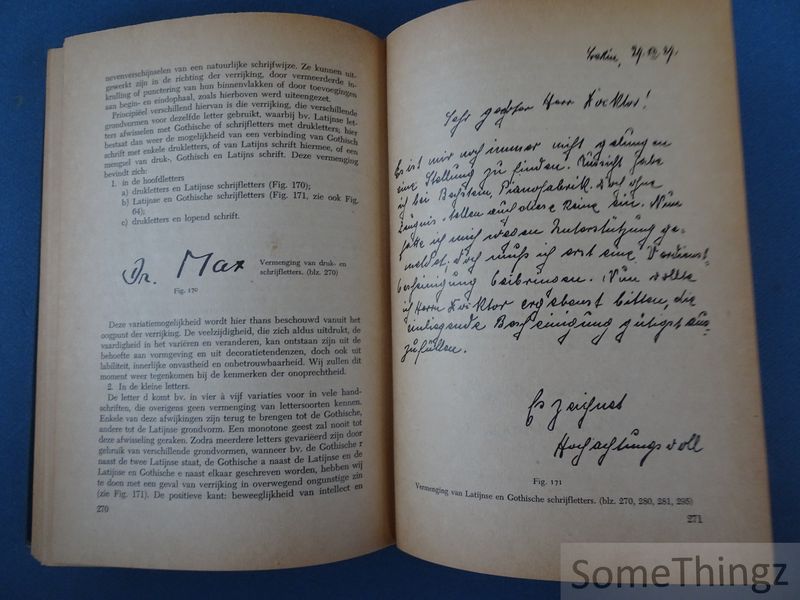 nevenverschijnselen van een natuurlijke schrijfwijze. Ze kunnen uit-
gewerkt zijn in de richting der verrijking, door vermeerderde in-
krulling of punctering van hun binnenvlakken of door toevoegingen
aan begin- en eindophaal, zoals hierboven werd uiteengezet.
Principiëel verschillend hiervan is die verrijking, die verschillende
grondvormen voor dezelfde letter gebruikt, waarbij bv. Latijnse let-
ters afwisselen met Gothische of schrijfletters met drukletters; hier
bestaat dan weer de mogelijkheid van een verbinding van Gothisch
schrift met enkele drukletters, of van Latijns schrift hiermee, of een
mengsel van druk-, Gothisch en Latijns schrift. Deze vermenging
bevindt zich:
1. in de hoofdletters
a) drukletters en Latijnse schrijfletters (Fig. 170);
b) Latijnse en Gothische schrijfletters (Fig. 171, zie ook Fig.
64);
c) drukletters en lopend schrift.
Dr. Max
Vermenging van druk- en
schrijfletters. (blz. 270)
Fig. 170
Deze variatiemogelijkheid wordt hier thans beschouwd vanuit het
oogpunt der verrijking. De veelzijdigheid, die zich aldus uitdrukt, de
vaardigheid in het variëren en veranderen, kan ontstaan zijn uit de
behoefte aan vormgeving en uit decoratietendenzen, doch ook uit
labiliteit, innerlijke onvastheid en onbetrouwbaarheid. Wij zullen dit
moment weer tegenkomen bij de kenmerken der onoprechtheid.
2. In de kleine letters.
De letter d komt bv. in vier à vijf variaties voor in vele hand-
schriften, die overigens geen vermenging van lettersoorten kennen.
Enkele van deze afwijkingen zijn terug te brengen tot de Gothische,
andere tot de Latijnse grondvorm. Een monotone geest zal nooit tot
deze afwisseling geraken. Zodra meerdere letters gevariëerd zijn door
gebruik van verschillende grondvormen, wanneer bv. de Gothische r
naast de twee Latijnse staat, de Gothische a naast de Latijnse en de
Gothische e naast de Latijnse e naast elkaar geschreven worden, hebben wij
te doen met een geval van verrijking in overwegend ongunstige zin
(zie Fig. 171). De positieve kant: beweeglijkheid van intellect en
270
Sehr geehrter Herr Doektor!
Es ist mir noch immer nicht gelungen
eine Stellung zu finden. Aussicht habe
ich bei Bechstein, Pianofabrik. Doch ohne
Zeugnis stellen auch diese keine ein. Nun
hatte ich mich wegen Unterstützung ge-
meldet, doch muss ich erst eine Verdienst-
bescheinigung beibringen. Nun wollte
ich Herrn Doektor ergebenst bitten, die
einliegende Bescheinigung gütigst aus-
zufüllen.
Es zeichnet
Hochachtungsvoll
Fig. 171
Vermenging van Latijnse en Gothische schrijfletters. (blz. 270, 280, 281, 295)
271
SomeThingz